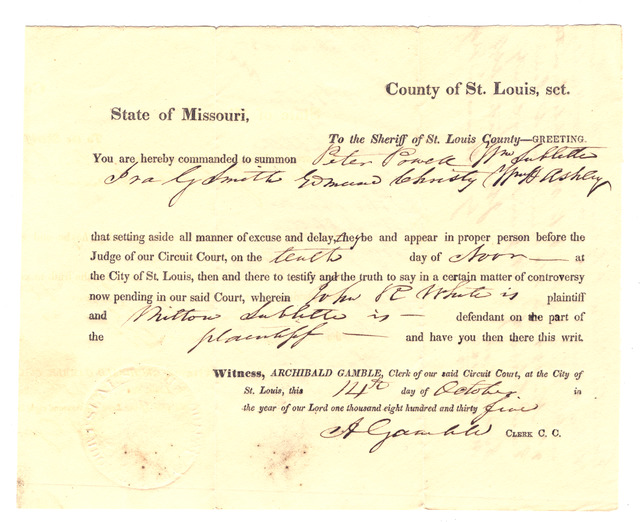 County of St. Louis, sct.
State of Missouri,
To the Sheriff of St. Louis County—GREETING.
You are hereby commanded to summon Peter Powell Wm Sublette
Ira G Smith Edmund Christy Wm H Ashley
that setting aside all manner of excuse and delay, they be and appear in proper person before the
Judge of our Circuit Court, on the tenth day of Novr — at
the City of St. Louis, then and there to testify and the truth to say in a certain matter of controversy
now pending in our said Court, wherein John R White is plaintiff
and Milton Sublette is — defendant on the part of
the plaintiff — and have you then there this writ.
Witness, ARCHIBALD GAMBLE, Clerk of our said Circuit Court, at the City of
St. Louis, this 14th day of October in
the year of our Lord one thousand eight hundred and thirty five
A Gamble CLERK C. C.